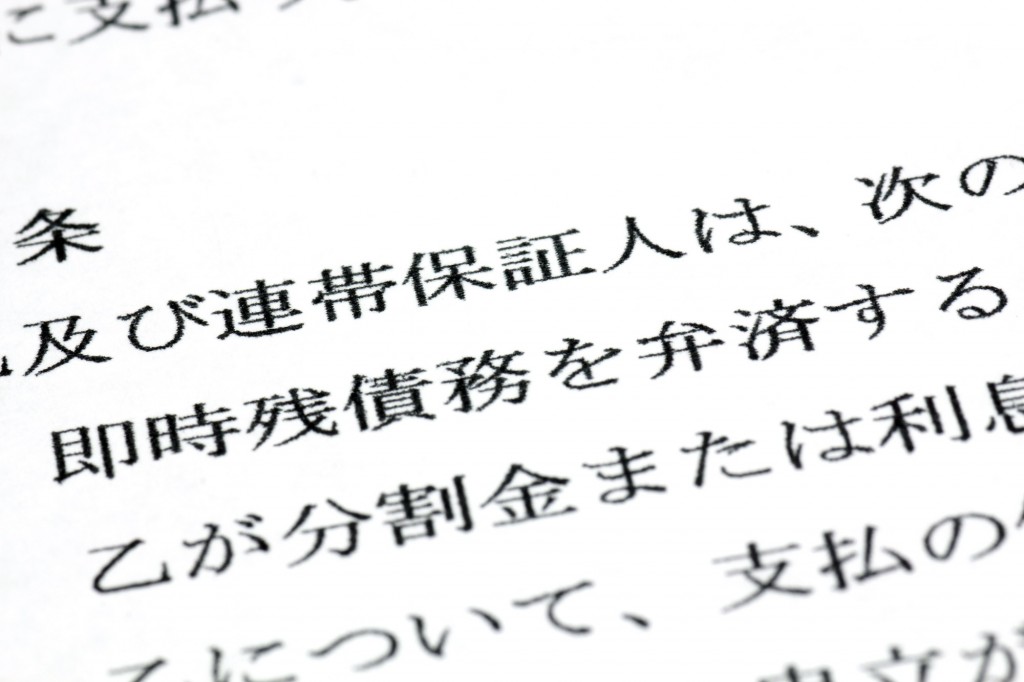 に支払
条
及び連帯保証人は、次の
即時残債務を弁済する
乙が分割金または利息
について、支払の
申立が